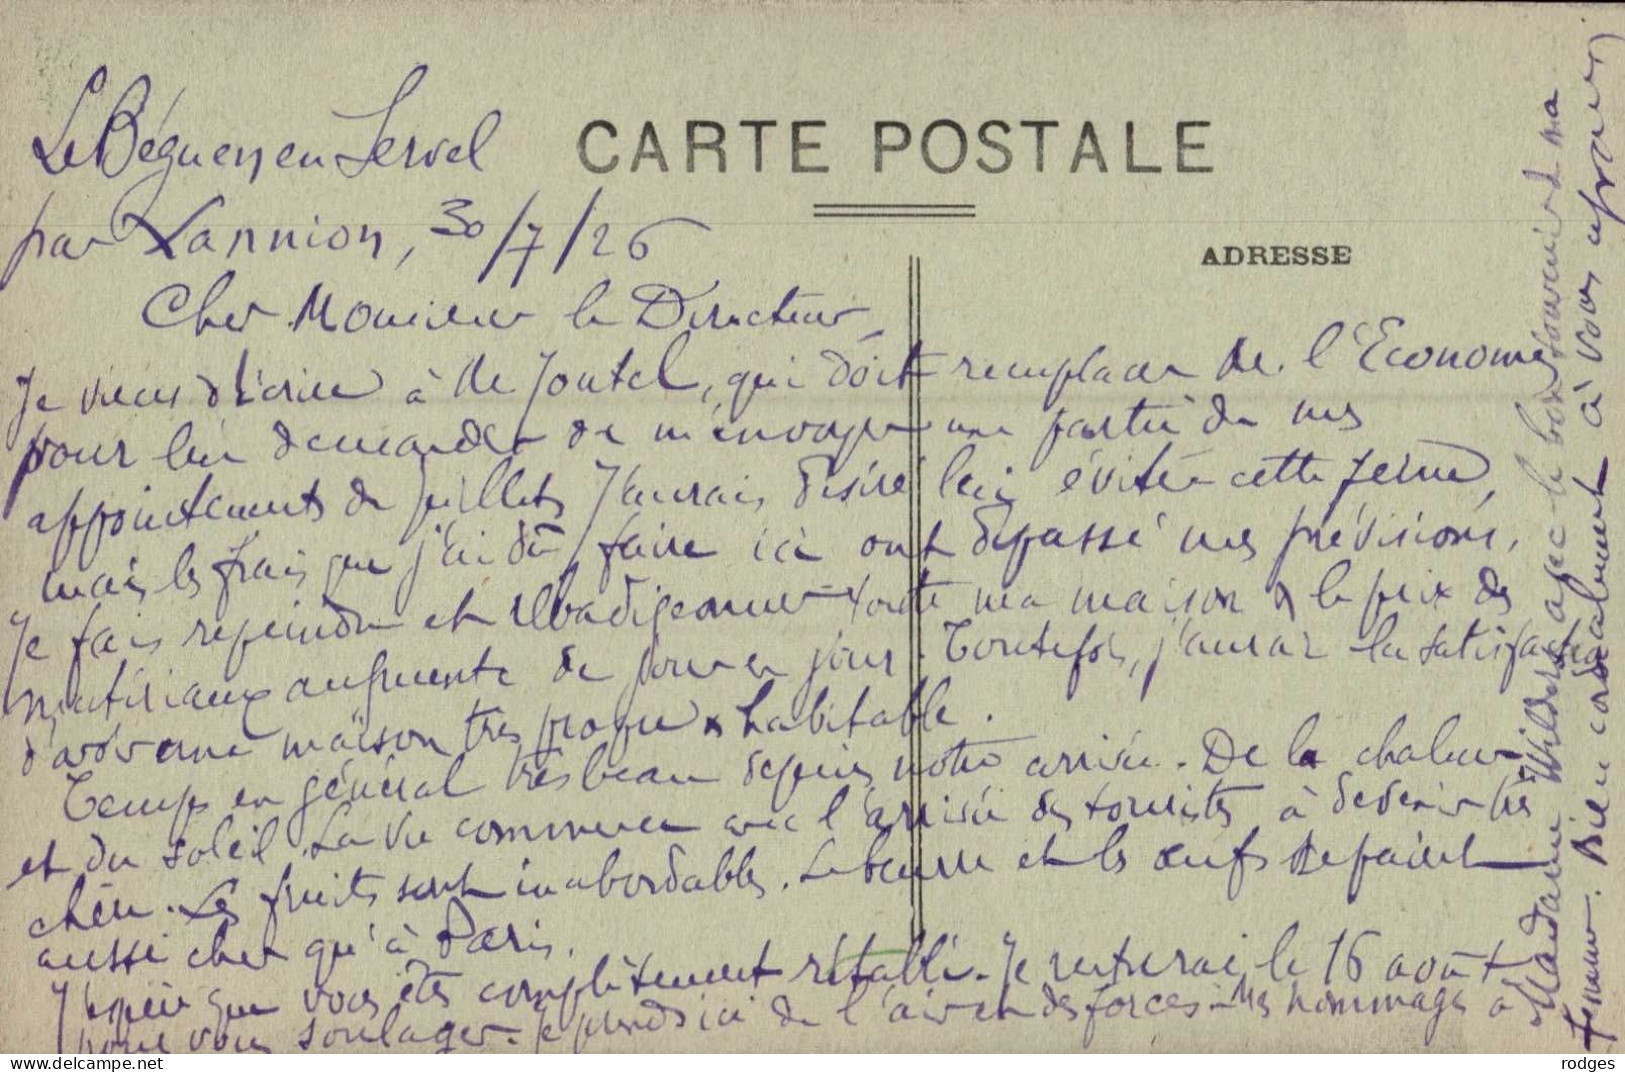 Le Béguen en Servel
CARTE POSTALE
par Lannion, 30/7/26
ADRESSE
Cher Monsieur le Directeur,
Je viens d'écrire à M. Joutel, qui doit remplacer M. l'Econome
pour lui demander de m'envoyer une partie de mes
appointements de juillet. J'aurais désiré lui éviter cette peine,
mais les frais que j'ai dû faire ici ont dépassé mes prévisions.
Je fais repeindre et rebadigeonner toute ma maison & le prix des
matériaux augmente de jour en jour. Toutefois, j'aurai la satisfaction
d'avoir une maison très propre & habitable.
Temps en général très beau depuis notre arrivée. De la chaleur
et du soleil. La vie commence avec l'arrivée des touristes à devenir très
chère. Les fruits sont inabordables. Le beurre et les œufs se paient
aussi cher qu'à Paris.
J'espère que vous êtes complètement rétabli. Je rentrerai le 16 août
pour vous soulager. Je prends ici de l'air et des forces. Mes hommages à
Madame avec le bon souvenir de ma
femme. Bien cordialement à vous
rodges